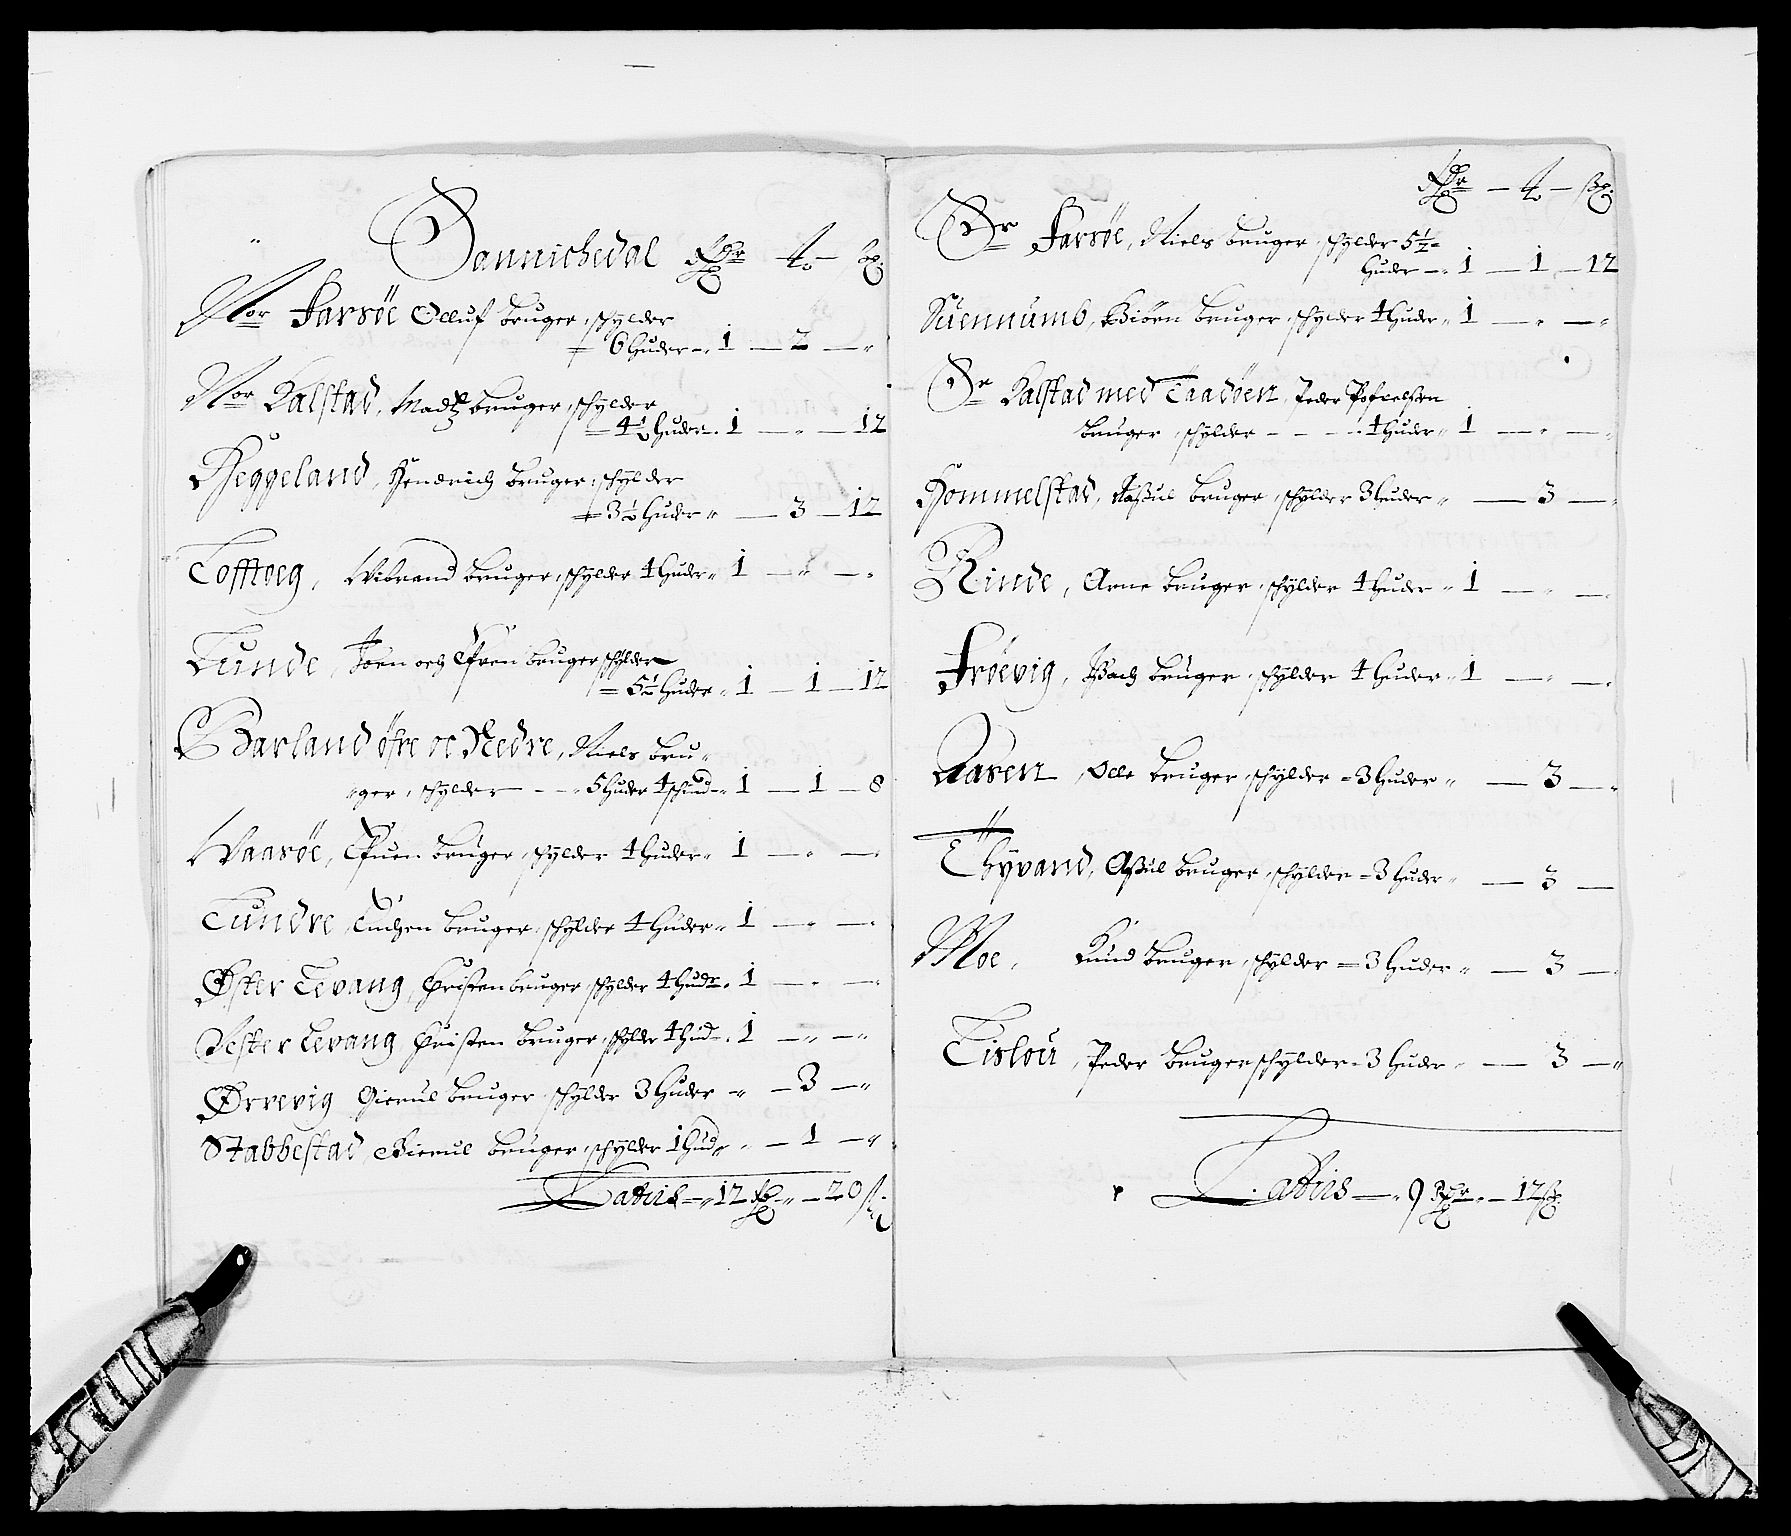 Sannichedal Rdr — ß
Nor Farsöe Olluf bruger, schylder
= 6 huder — 1 — 2 —
Nor Kalstad, Madtz bruger, schylder
= 4½ huder — 1 — 12
Heggeland, Hendrich bruger, schylder
= 3½ huder — 3 — 12
Tofftoeg, Wibrand bruger, schylder 4 huder 1 — —
Lunde, Joen och Efven bruger schylder
= 5½ huder 1 — 1 — 12
Barland öfre oc Nedre, Niels bru-
ger, schylder — 5 huder 4 schind — 1 — 1 — 8
Waasöe, Efuen bruger, schylder 4 huder 1 — —
Tundre, bruger, schylder 4 huder 1 — —
Øster Levang, Christen bruger, schylder 4 hudr 1 — —
Vester Levang, Christen bruger, schylder 4 hud 1 — —
Ørrevig Gierul bruger schylder 3 huder — 3 —
Stabbestad, Gierul bruger, schylder 1 hud — 1 —
Lattus — 12 Rd — 20 ß
Rdr — ß
Sr Farsöe, Niels bruger, schylder 5½
huder — 1 — 1 — 12
Suennumb, Biören bruger, schylder 4 huder 1 — —
Sr Kalstad med Taadöen, Peder Pofvelsen
bruger, schylder — — 4 huder 1 — —
Hommelstad, Aßul bruger, schylder 3 huder — 3 —
Rinde, Arne bruger, schylder 4 huder 1 — —
Fröevig, Isach bruger, schylder 4 huder 1 — —
Aasen, Olle bruger, schylder = 3 huder — 3 —
Thyvand, Aßul bruger, schylder = 3 huder — 3 —
Moe, Knud bruger, schylder = 3 huder — 3 —
Tislou, Peder bruger schylder = 3 huder — 3 —
Lattus — 9 Rdr — 12 ß